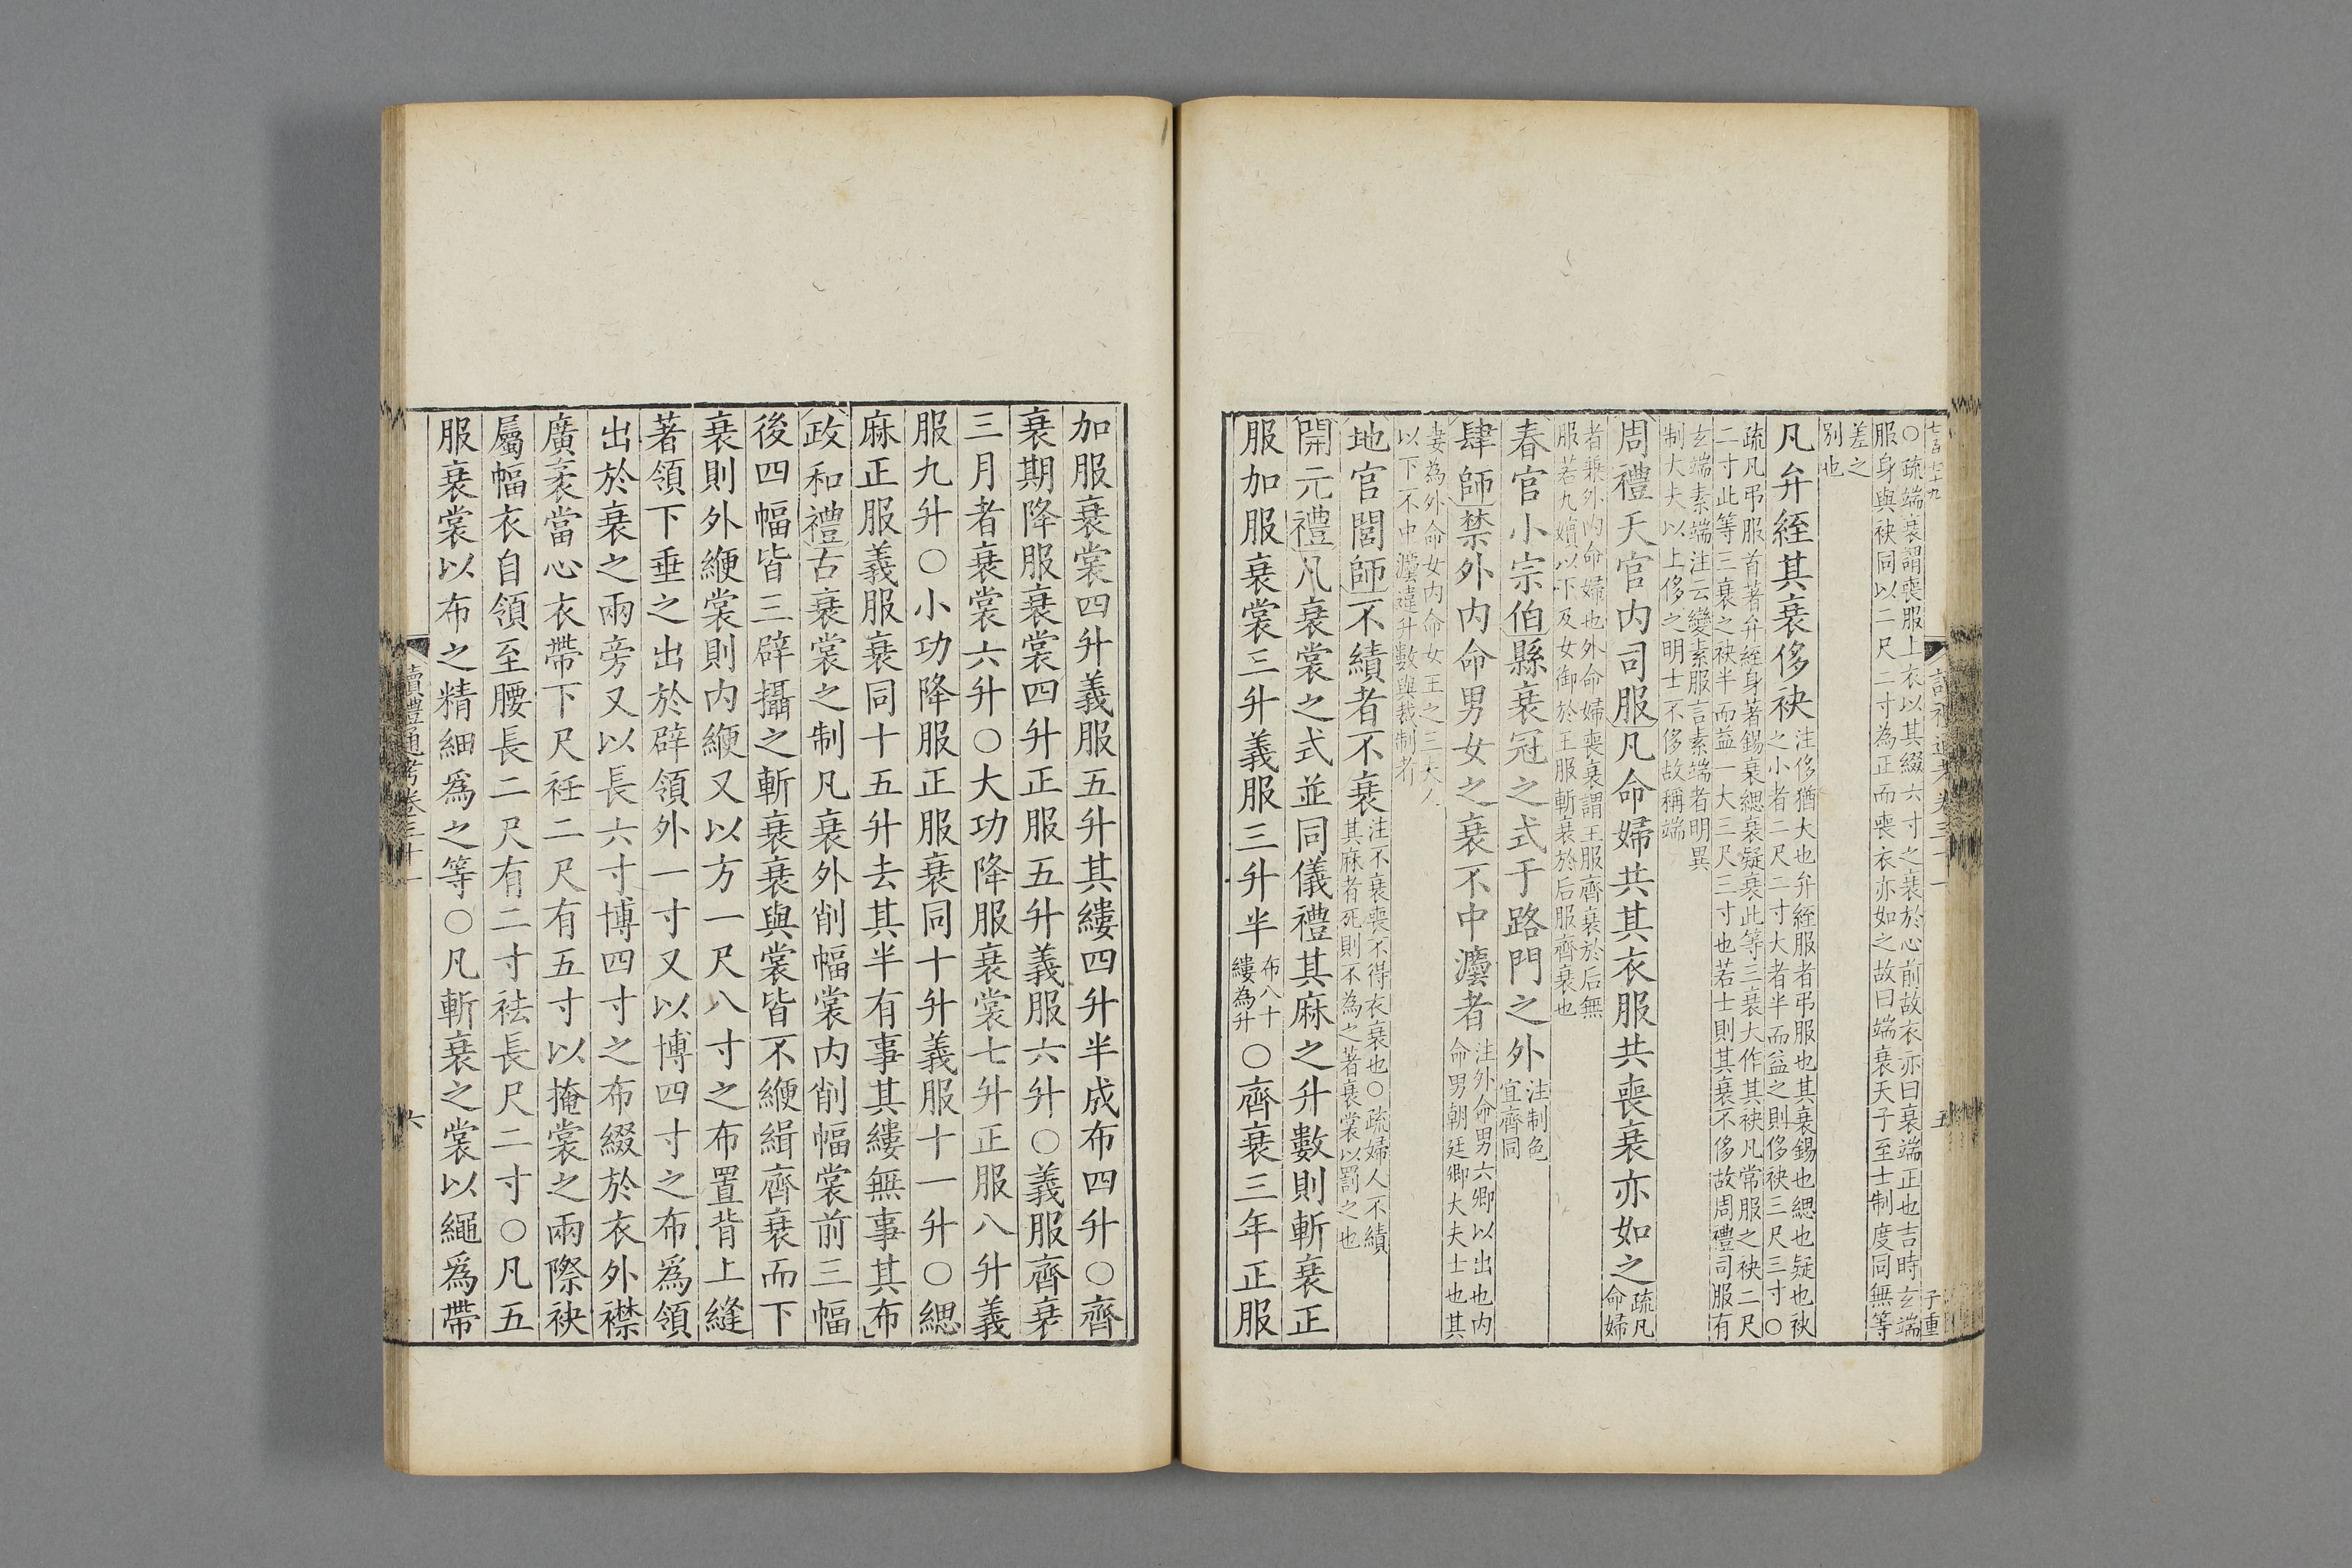 ○疏端衰謂喪服上衣以其綴六寸之衰於心前故衣亦曰衰端正也吉時玄端
服身與袂同以二尺二寸為正而喪衣亦如之故曰端衰天子至士制度同無等
差之
別也
凡弁絰其衰侈袂注侈猶大也弁絰服者弔服也其衰錫也緦也疑也袂
之小者二尺二寸大者半而益之則侈袂三尺三寸○
疏凡弔服首著弁絰身著錫衰緦衰疑衰此等三衰大作其袂凡常服之袂二尺
二寸此等三衰之袂半而益一大三尺三寸也若士則其衰不侈故周禮司服有
玄端素端注云變素服言素端者明異
制大夫以上侈之明士不侈故稱端
周禮天官内司服凡命婦共其衣服共喪衰亦如之疏凡
命婦
者兼外内命婦也外命婦喪衰謂王服齊衰於后無
服若九嬪以下及女御於王服斬衰於后服齊衰也
春官小宗伯縣衰冠之式于路門之外注制色
宜齊同
肆師禁外内命男女之衰不中灋者注外命男六卿以出也内
命男朝廷卿大夫士也其
妻為外命女内命女王之三夫人
以下不中灋違升數與裁制者
地官閭師不績者不衰注不衰喪不得衣衰也○疏婦人不績
其麻者死則不為之著衰裳以罰之也
開元禮凡衰裳之式並同儀禮其麻之升數則斬衰正
服加服衰裳三升義服三升半布八十
縷為升○齊衰三年正服
加服衰裳四升義服五升其縷四升半成布四升○齊
衰期降服衰裳四升正服五升義服六升○義服齊衰
三月者衰裳六升○大功降服衰裳七升正服八升義
服九升○小功降服正服衰同十升義服十一升○緦
麻正服義服衰同十五升去其半有事其縷無事其布
政和禮古衰裳之制凡衰外削幅裳内削幅裳前三幅
後四幅皆三辟攝之斬衰衰與裳皆不緶緝齊衰而下
衰則外緶裳則内緶又以方一尺八寸之布置背上縫
著領下垂之出於辟領外一寸又以博四寸之布爲領
出於衰之兩旁又以長六寸博四寸之布綴於衣外襟
廣袤當心衣帶下尺衽二尺有五寸以掩裳之兩際袂
屬幅衣自領至腰長二尺有二寸袪長尺二寸○凡五
服衰裳以布之精細爲之等○凡斬衰之裳以繩爲帶
讀禮通考卷三十一
六